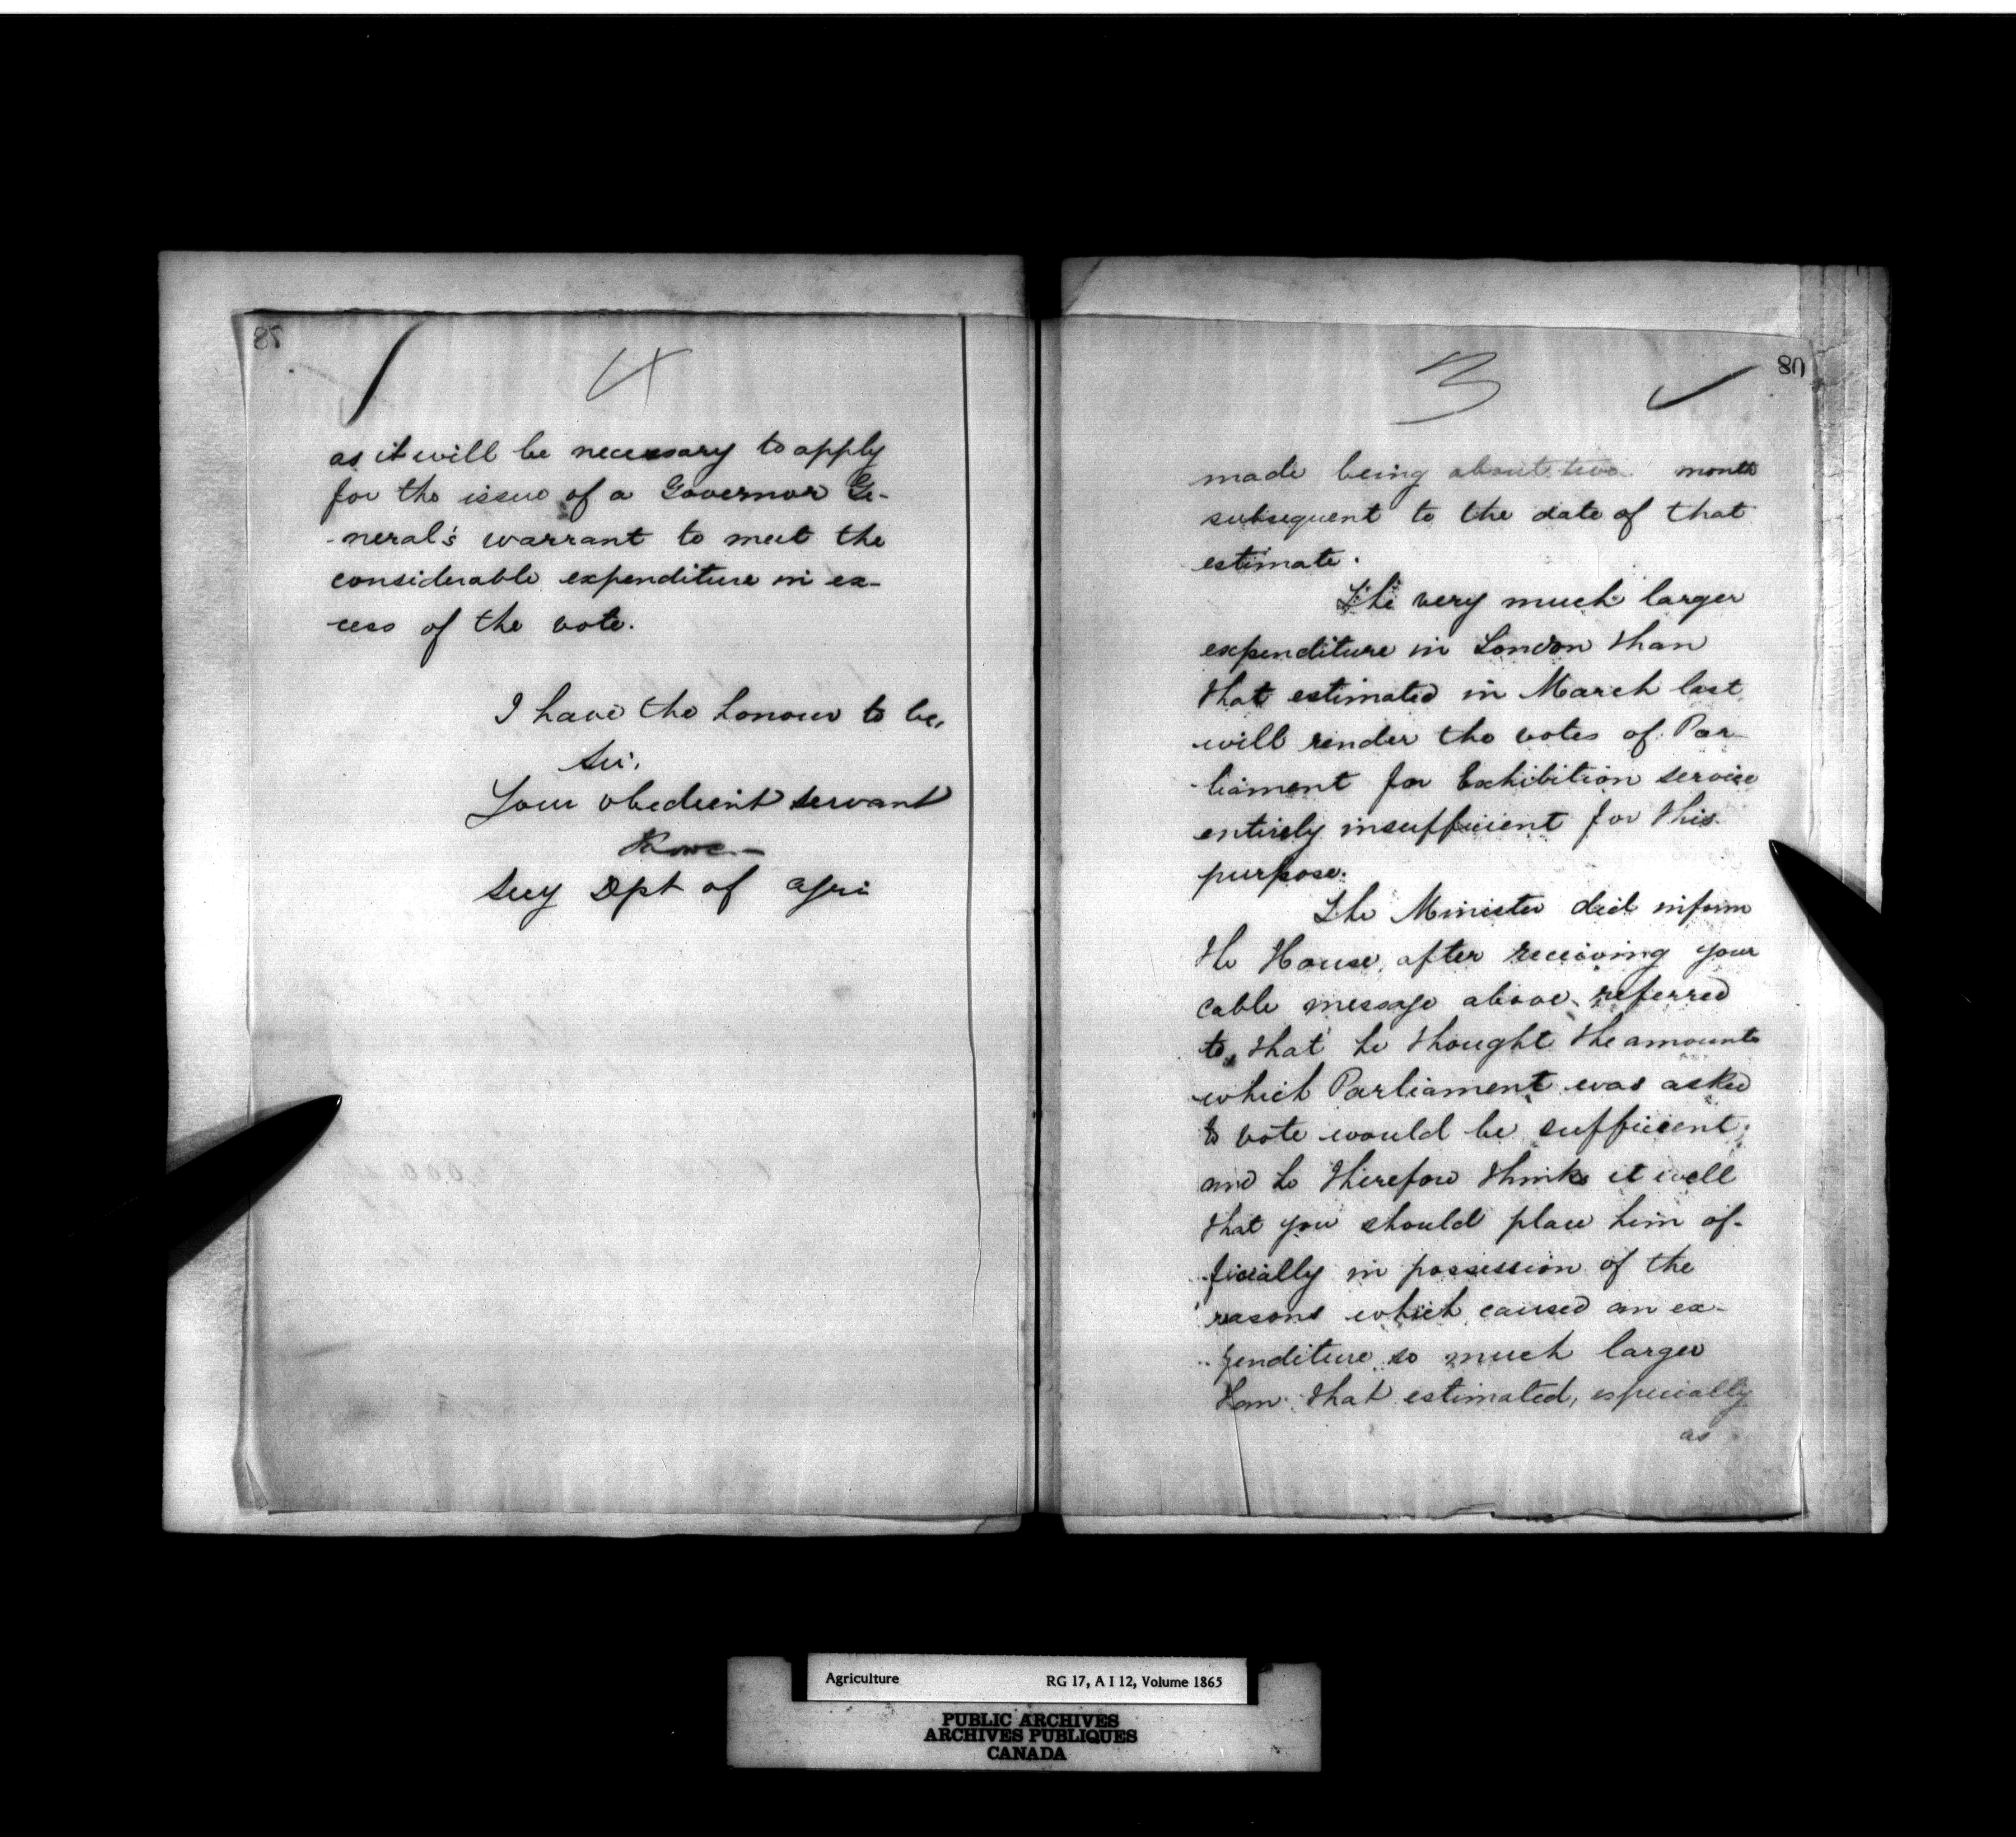 4
as it will be necessary to apply
for the issue of a Governor Ge-
-neral's warrant to meet the
considerable expenditure in ex-
-cess of the vote.
I have the honour to be,
Sir,
Your obedient servant
Secy Dpt of Agri
3
80
made being about two month
subsequent to the date of that
estimate.
The very much larger
expenditure in London than
that estimated in March last,
will render the votes of Par-
-liament for Exhibition service
entirely insufficient for this
purpose.
The Minister did inform
the House, after receiving your
cable message above referred
to, that he thought the amounts
which Parliament was asked
to vote would be sufficient;
and he therefore thinks it well
that you should place him of-
-ficially in possession of the
reasons which caused an ex-
-penditure so much larger
than that estimated, especially
as
Agriculture RG 17, A I 12, Volume 1865
PUBLIC ARCHIVES
ARCHIVES PUBLIQUES
CANADA